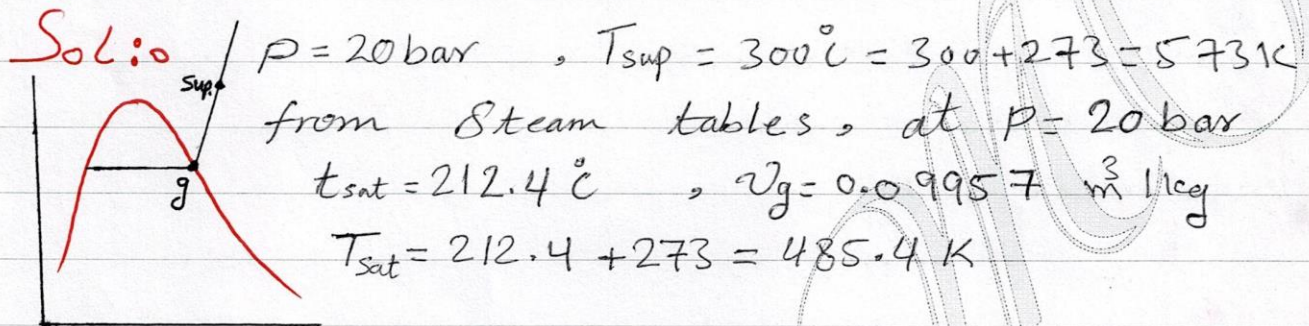 Sol:
p = 20 bar , Tsup = 300°C = 300 + 273 = 573 K
Sup.
from Steam tables, at p = 20 bar
tsat = 212.4 °C , Vg = 0.09957 m³/kg
g
Tsat = 212.4 + 273 = 485.4 K